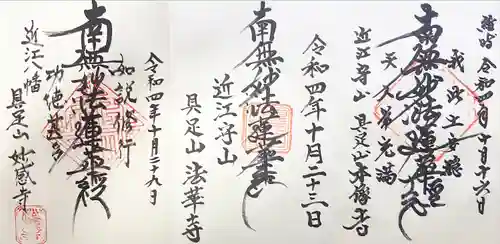 維時 令和四年十月十六日
我此土安穏
南無妙法蓮華経
天人常充満
近江守山 具足山本像寺
令和四年十月二十三日
南無妙法蓮華経
近江守山
具足山 法華寺
令和四年十月二十九日
如説修行
南無妙法蓮華経
功徳甚多
近江八幡
具足山 妙感寺